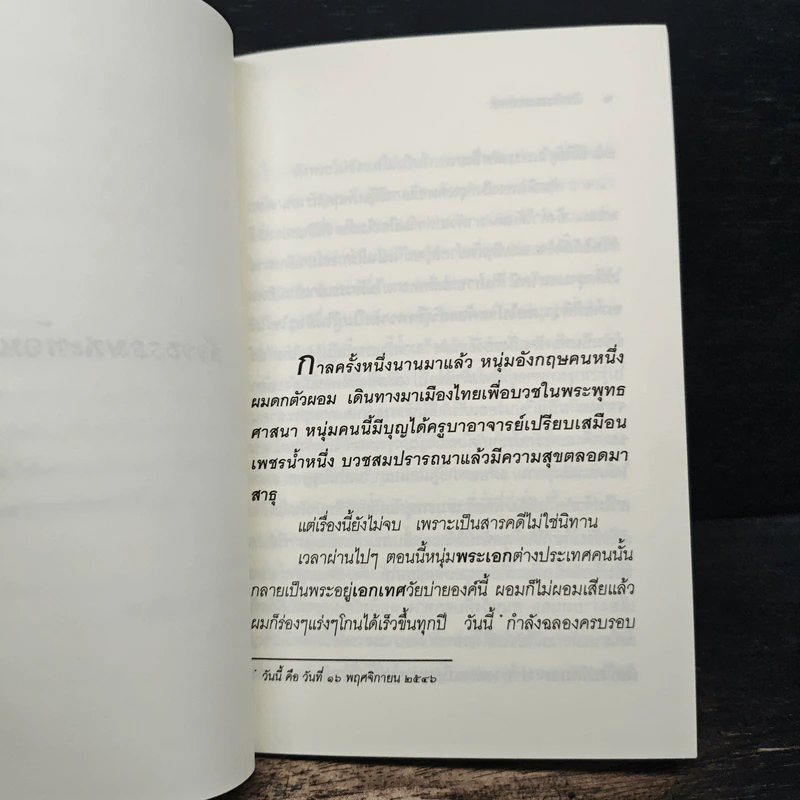 กาลครั้งหนึ่งนานมาแล้ว หนุ่มอังกฤษคนหนึ่ง
ผมดกตัวผอม เดินทางมาเมืองไทยเพื่อบวชในพระพุทธ
ศาสนา หนุ่มคนนี้มีบุญได้ครูบาอาจารย์เปรียบเสมือน
เพชรน้ำหนึ่ง บวชสมปรารถนาแล้วมีความสุขตลอดมา
สาธุ
แต่เรื่องนี้ยังไม่จบ เพราะเป็นสารคดีไม่ใช่นิทาน
เวลาผ่านไปๆ ตอนนี้หนุ่มพระเอกต่างประเทศคนนั้น
กลายเป็นพระอยู่เอกเทศวัยบ่ายองค์นี้ ผอมก็ไม่ผอมเสียแล้ว
ผมก็ร่องๆแร่งๆโกนได้เร็วขึ้นทุกปี วันนี้ * กำลังฉลองครบรอบ
* วันนี้ คือ วันที่ ๑๖ พฤศจิกายน ๒๕๔๖